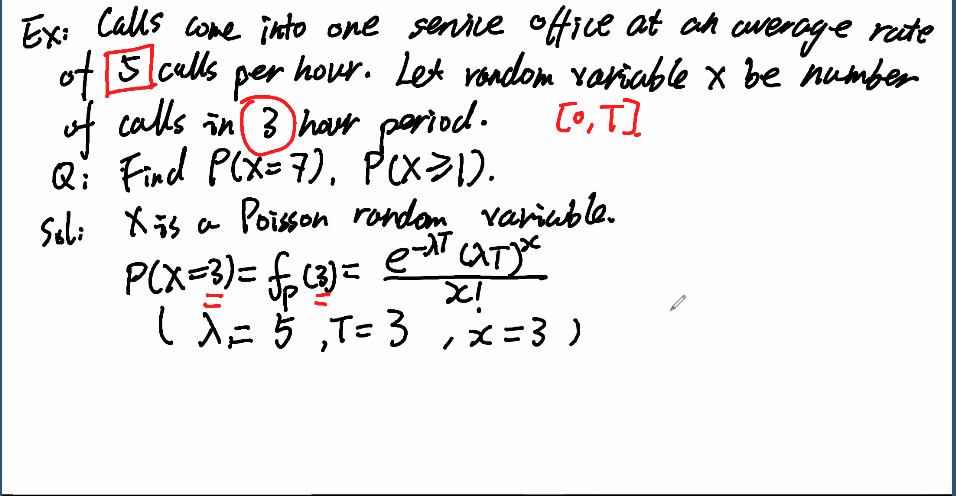 Ex: Calls come into one service office at an average rate
of 5 calls per hour. Let random variable X be number
of calls in 3 hour period. [0, T]
Q: Find P(X=7), P(X≥1).
Sol: X is a Poisson random variable.
P(X=3) = f_p(3) = e^{-λT} (λT)^x / x!
( λ = 5 , T = 3 , x = 3 )